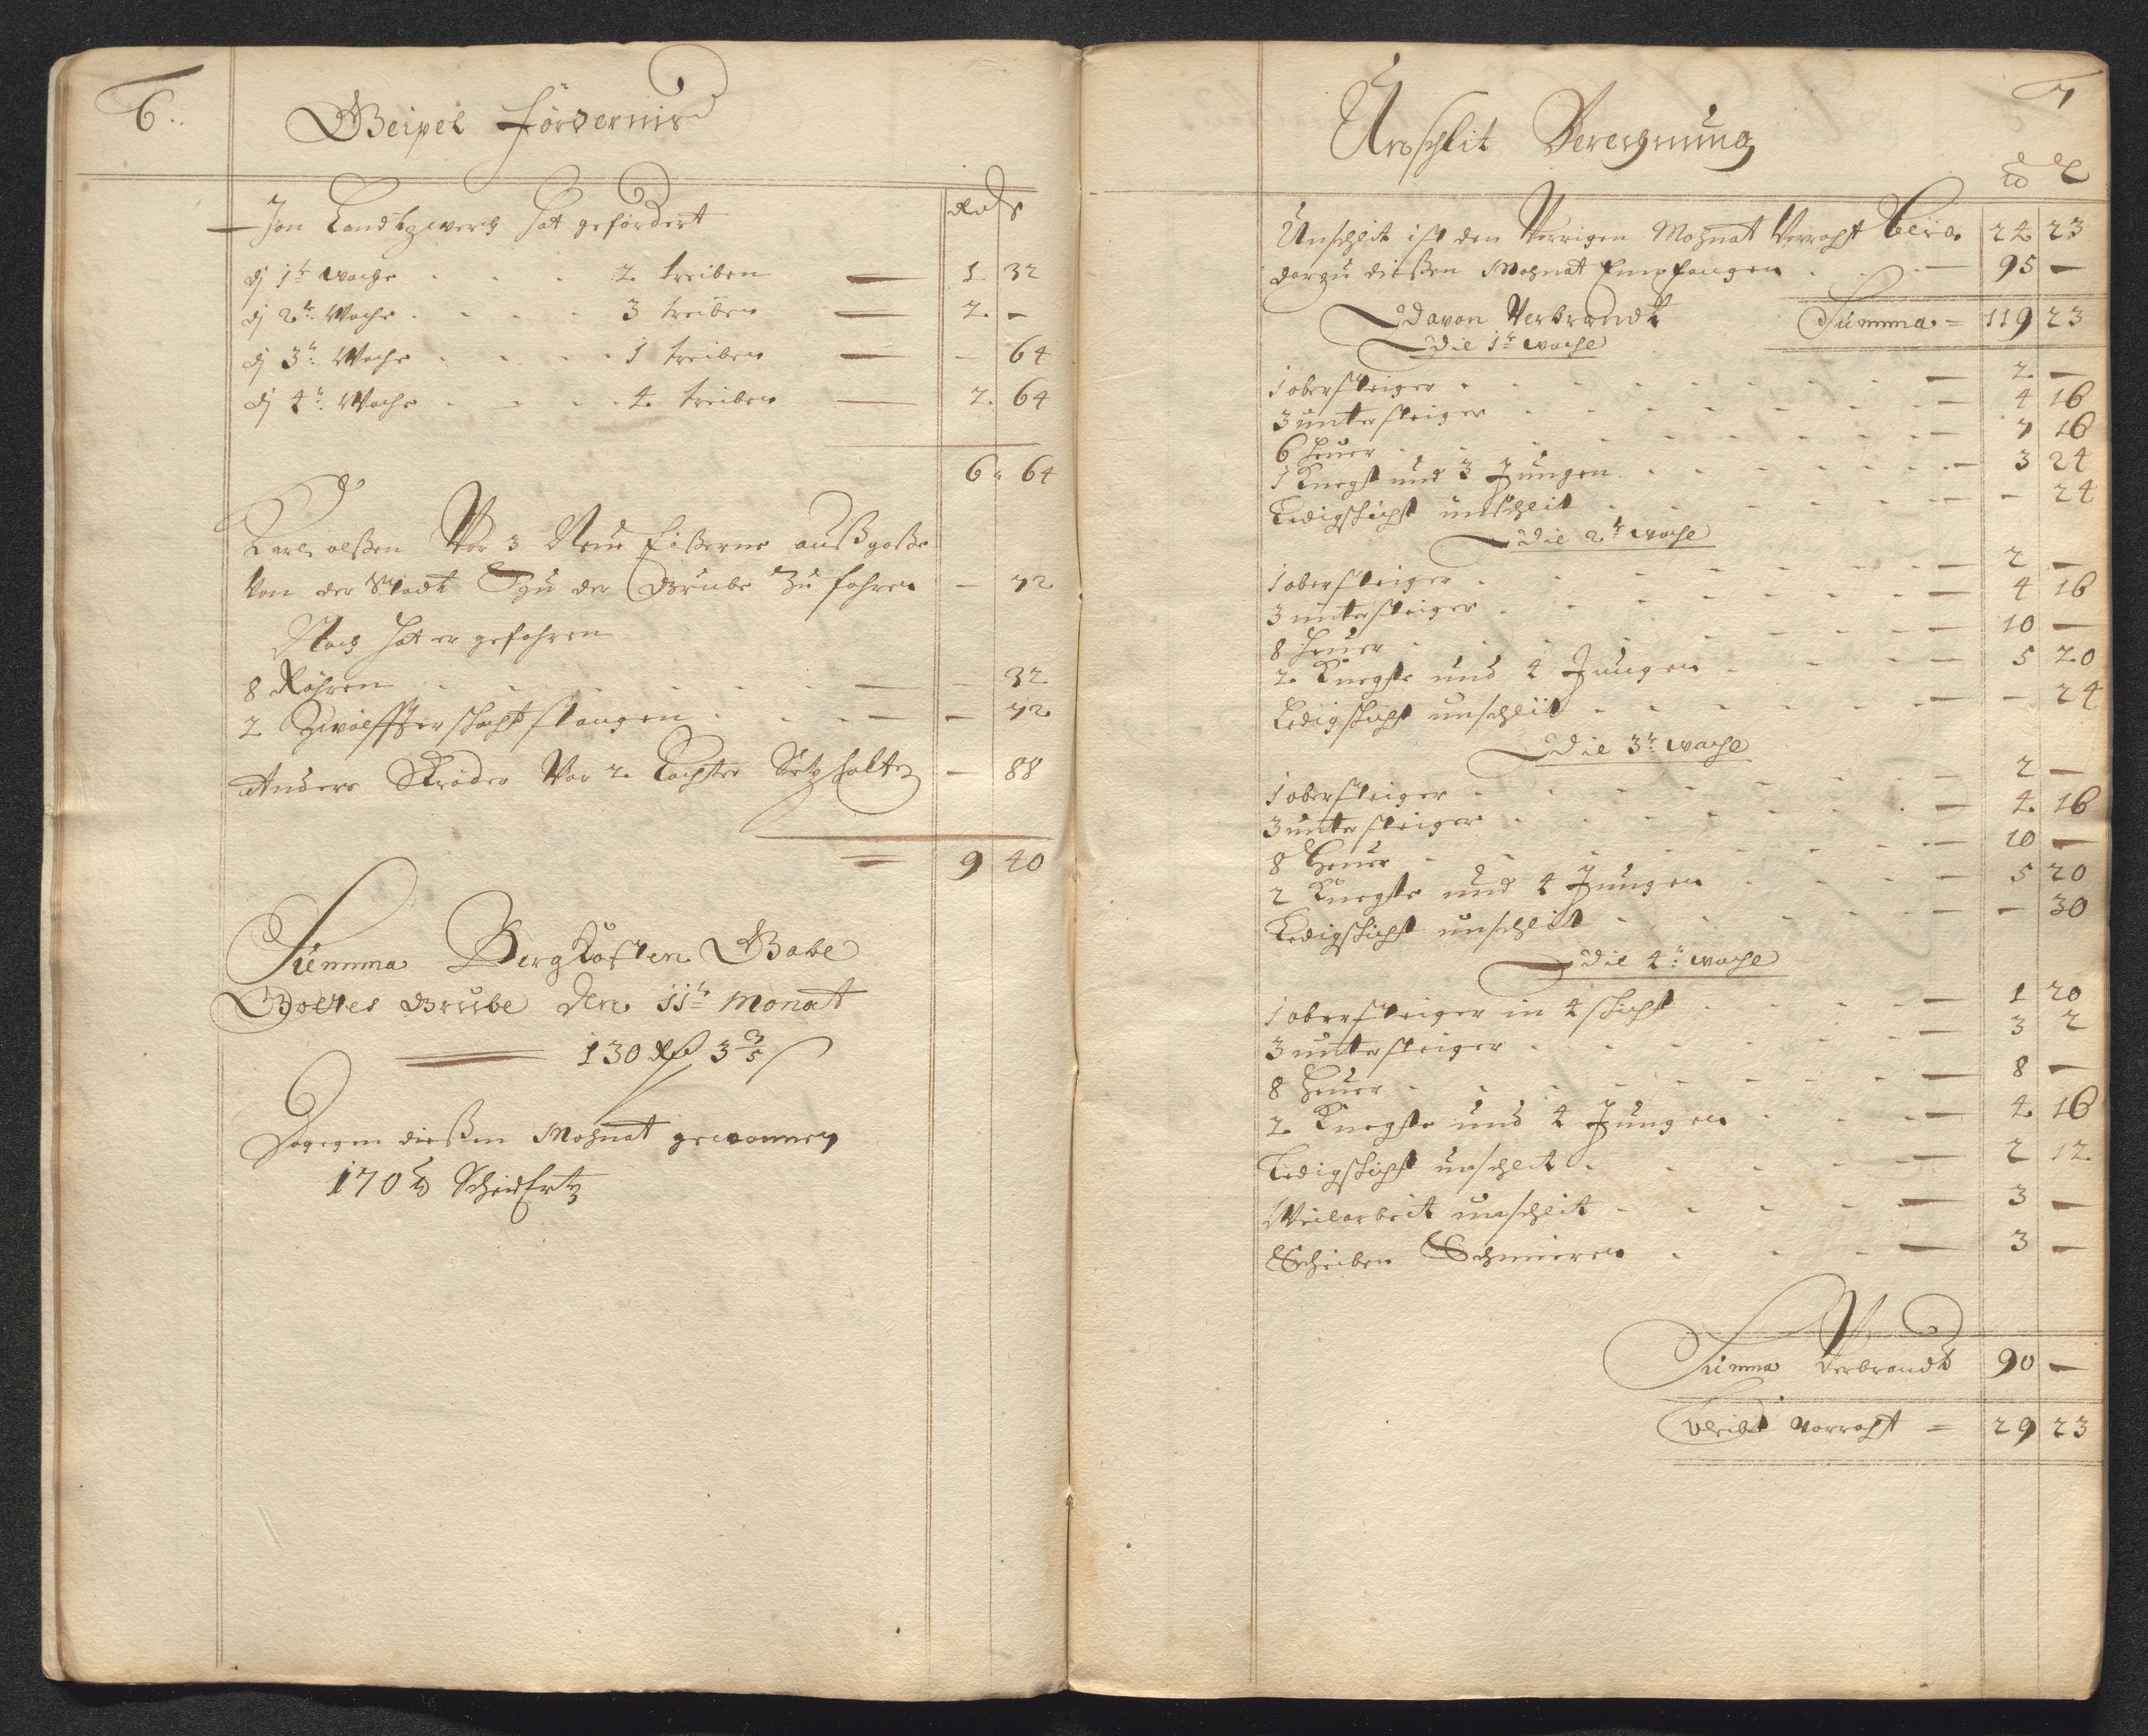 6..
Geipel fördernis
Rd ß
Jon Landtzwerg hat gefördert
dj 1te woche . . . 2. treiben — 1. 32
dj 2te Woche . . . 3 treiben — 2. —
dj 3te Woche . . . 1 treiben — — 64
dj 4te Woche . . . 4. treiben — 2. 64
6 " 64
Carl olßen Vor 3 Neue Eißerne außgoße
Von der Stadt Zu der Grube Zu fahren — 72
Noch hat er gefahren
8 Röhren . . . — — 32
2 Zwölffter schacht stangen . . . — — 72
Anders Ströder Vor 2. Lachter Setz holtz — 88
= 9 40
Summa Bergkosten Gabe
Gottes Grube den 11te Monat
130 Rd 3 3/5 ß
Dogegen dießen Mohnat gewonnen
170 Scheidertz
7
Unschlit Berechnung
℔ L
Unschlit ist den Vorrigen Mohnat Vorraht bliben 24 23
darzu dießen Mohnat Empfangen . . — 95 —
Davon Verbrandt Summa = 119 23
Die 1te woche
1 obersteiger . . . — 2. —
3 untersteiger . . . — 4 16
6 heuer . . . — 7 16
1 Knecht und 3 Jungen . . . — 3 24
Ledigschicht unschlit . . . — — 24
Die 2te woche
1 obersteiger . . . — 2 —
3 untersteiger . . . — 4 16
8 heuer . . . — 10 —
2. Knechte und 4 Jungen . . . — 5 20
Ledigschicht unschlit . . . — — 24
Die 3te woche
1 obersteiger . . . — 2 —
3 untersteiger . . . — 4. 16
8 heuer . . . — 10 —
2 Knechte und 4 Jungen . . . — 5 20
Ledigschicht unschlit . . . — — 30
Die 4te woche
1 obersteiger in 4 schicht . . . — 1 20
3 untersteiger . . . — 3 2
8 heuer . . . — 8 —
2. Knechte und 4 Jungen . . . — 4. 16
Ledigschicht unschlit . . . — 2 12
Weilarbeit unschlit . . . — 3 —
Scheiben Schmieren . . . — 3 —
Summa Verbrandt 90 —
bleibt Vorraht = 29 23